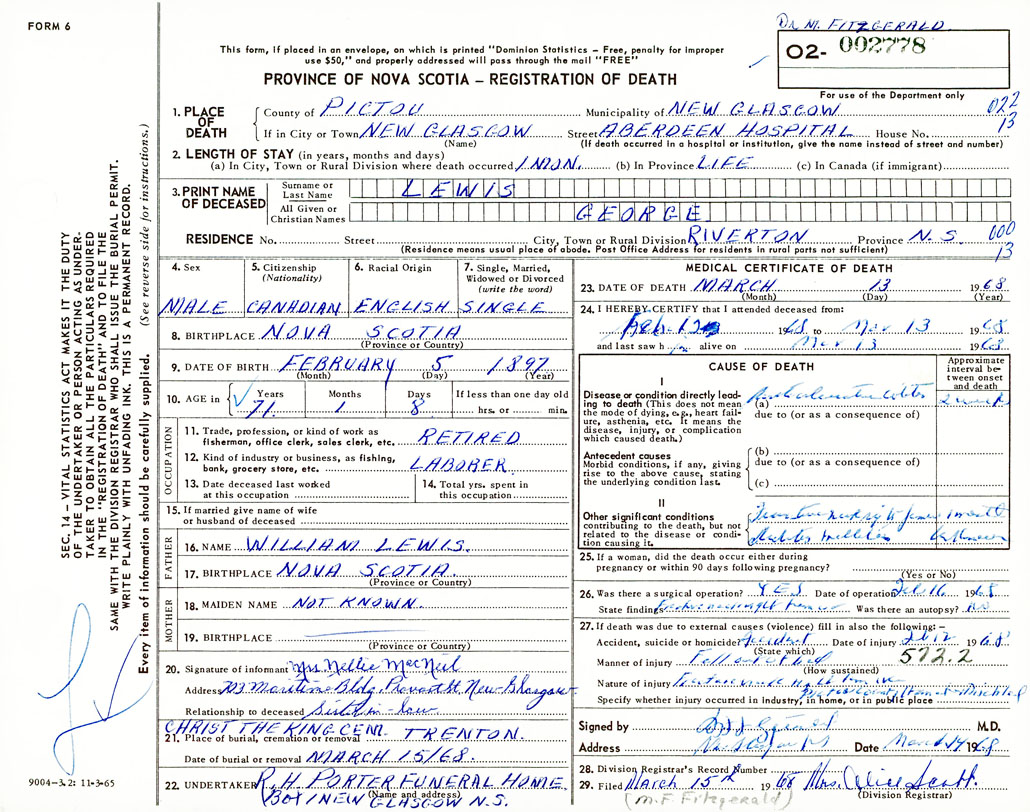 FORM 6
Dr. M. FITZGERALD
02- 002778
This form, if placed in an envelope, on which is printed "Dominion Statistics – Free, penalty for improper
use $50," and properly addressed will pass through the mail "FREE"
PROVINCE OF NOVA SCOTIA – REGISTRATION OF DEATH
For use of the Department only
SEC. 14 – VITAL STATISTICS ACT MAKES IT THE DUTY
OF THE UNDERTAKER OR PERSON ACTING AS UNDER-
TAKER TO OBTAIN ALL THE PARTICULARS REQUIRED
IN THE "REGISTRATION OF DEATH" AND TO FILE THE
SAME WITH THE DIVISION REGISTRAR WHO SHALL ISSUE THE BURIAL PERMIT.
WRITE PLAINLY WITH UNFADING INK. THIS IS A PERMANENT RECORD.
Every item of information should be carefully supplied. (See reverse side for instructions.)
1. PLACE OF DEATH
County of PICTOU Municipality of NEW GLASGOW 022
If in City or Town NEW GLASGOW Street ABERDEEN HOSPITAL House No. 13
(Name) (If death occurred in a hospital or institution, give the name instead of street and number)
2. LENGTH OF STAY (in years, months and days)
(a) In City, Town or Rural Division where death occurred 1 MON. (b) In Province LIFE (c) In Canada (if immigrant)
3. PRINT NAME OF DECEASED
Surname or Last Name LEWIS
All Given or Christian Names GEORGE
RESIDENCE No. Street City, Town or Rural Division RIVERTON Province N.S. 000
(Residence means usual place of abode. Post Office Address for residents in rural parts not sufficient) 13
4. Sex MALE
5. Citizenship (Nationality) CANADIAN
6. Racial Origin ENGLISH
7. Single, Married, Widowed or Divorced (write the word) SINGLE
8. BIRTHPLACE NOVA SCOTIA
(Province or Country)
9. DATE OF BIRTH FEBRUARY 5 1897
(Month) (Day) (Year)
10. AGE in Years Months Days If less than one day old
71. 1 8 hrs. or min.
OCCUPATION
11. Trade, profession, or kind of work as fisherman, office clerk, sales clerk, etc. RETIRED
12. Kind of industry or business, as fishing, bank, grocery store, etc. LABORER
13. Date deceased last worked at this occupation
14. Total yrs. spent in this occupation
15. If married give name of wife or husband of deceased
FATHER
16. NAME WILLIAM LEWIS.
17. BIRTHPLACE NOVA SCOTIA.
(Province or Country)
MOTHER
18. MAIDEN NAME NOT KNOWN.
19. BIRTHPLACE
(Province or Country)
20. Signature of informant Mrs Nellie MacNeil
Address Maritime Bldg. New Glasgow
Relationship to deceased Sister-in-law
CHRIST THE KING CEM. TRENTON.
21. Place of burial, cremation or removal
Date of burial or removal MARCH 15/68.
22. UNDERTAKER R.H. PORTER FUNERAL HOME
(Name and address)
BOX 1 NEW GLASGOW N.S.
9004-3.2: 11-3-65
MEDICAL CERTIFICATE OF DEATH
23. DATE OF DEATH MARCH 13 1968
(Month) (Day) (Year)
24. I HEREBY CERTIFY that I attended deceased from:
Feb 12 1968 to Mar 13 1968
and last saw h im alive on Mar 13 1968
CAUSE OF DEATH
Approximate interval between onset and death
I
Disease or condition directly lead-
ing to death (This does not mean
the mode of dying, e.g., heart fail-
ure, asthenia, etc. It means the
disease, injury, or complication
which caused death.)
(a) 2 weeks
due to (or as a consequence of)
Antecedent causes
Morbid conditions, if any, giving
rise to the above cause, stating
the underlying condition last.
(b)
due to (or as a consequence of)
(c)
II
Other significant conditions
contributing to the death, but not
related to the disease or condi-
tion causing it.
1 month
Diabetes mellitus unknown
25. If a woman, did the death occur either during
pregnancy or within 90 days following pregnancy?
(Yes or No)
26. Was there a surgical operation? YES Date of operation Feb 16 1968
State findings Was there an autopsy? no
27. If death was due to external causes (violence) fill in also the following: –
Accident, suicide or homicide? Accident Date of injury Feb 12 1968
(State which) 572.2
Manner of injury Fell out of bed
(How sustained)
Nature of injury Fracture
Specify whether injury occurred in industry, in home, or in public place
Signed by M.D.
Address New Glasgow NS Date March 14 1968
28. Division Registrar's Record Number
29. Filed March 15th 1968 Mrs. Alice Scott.
(Division Registrar)
(M.F. Fitzgerald)